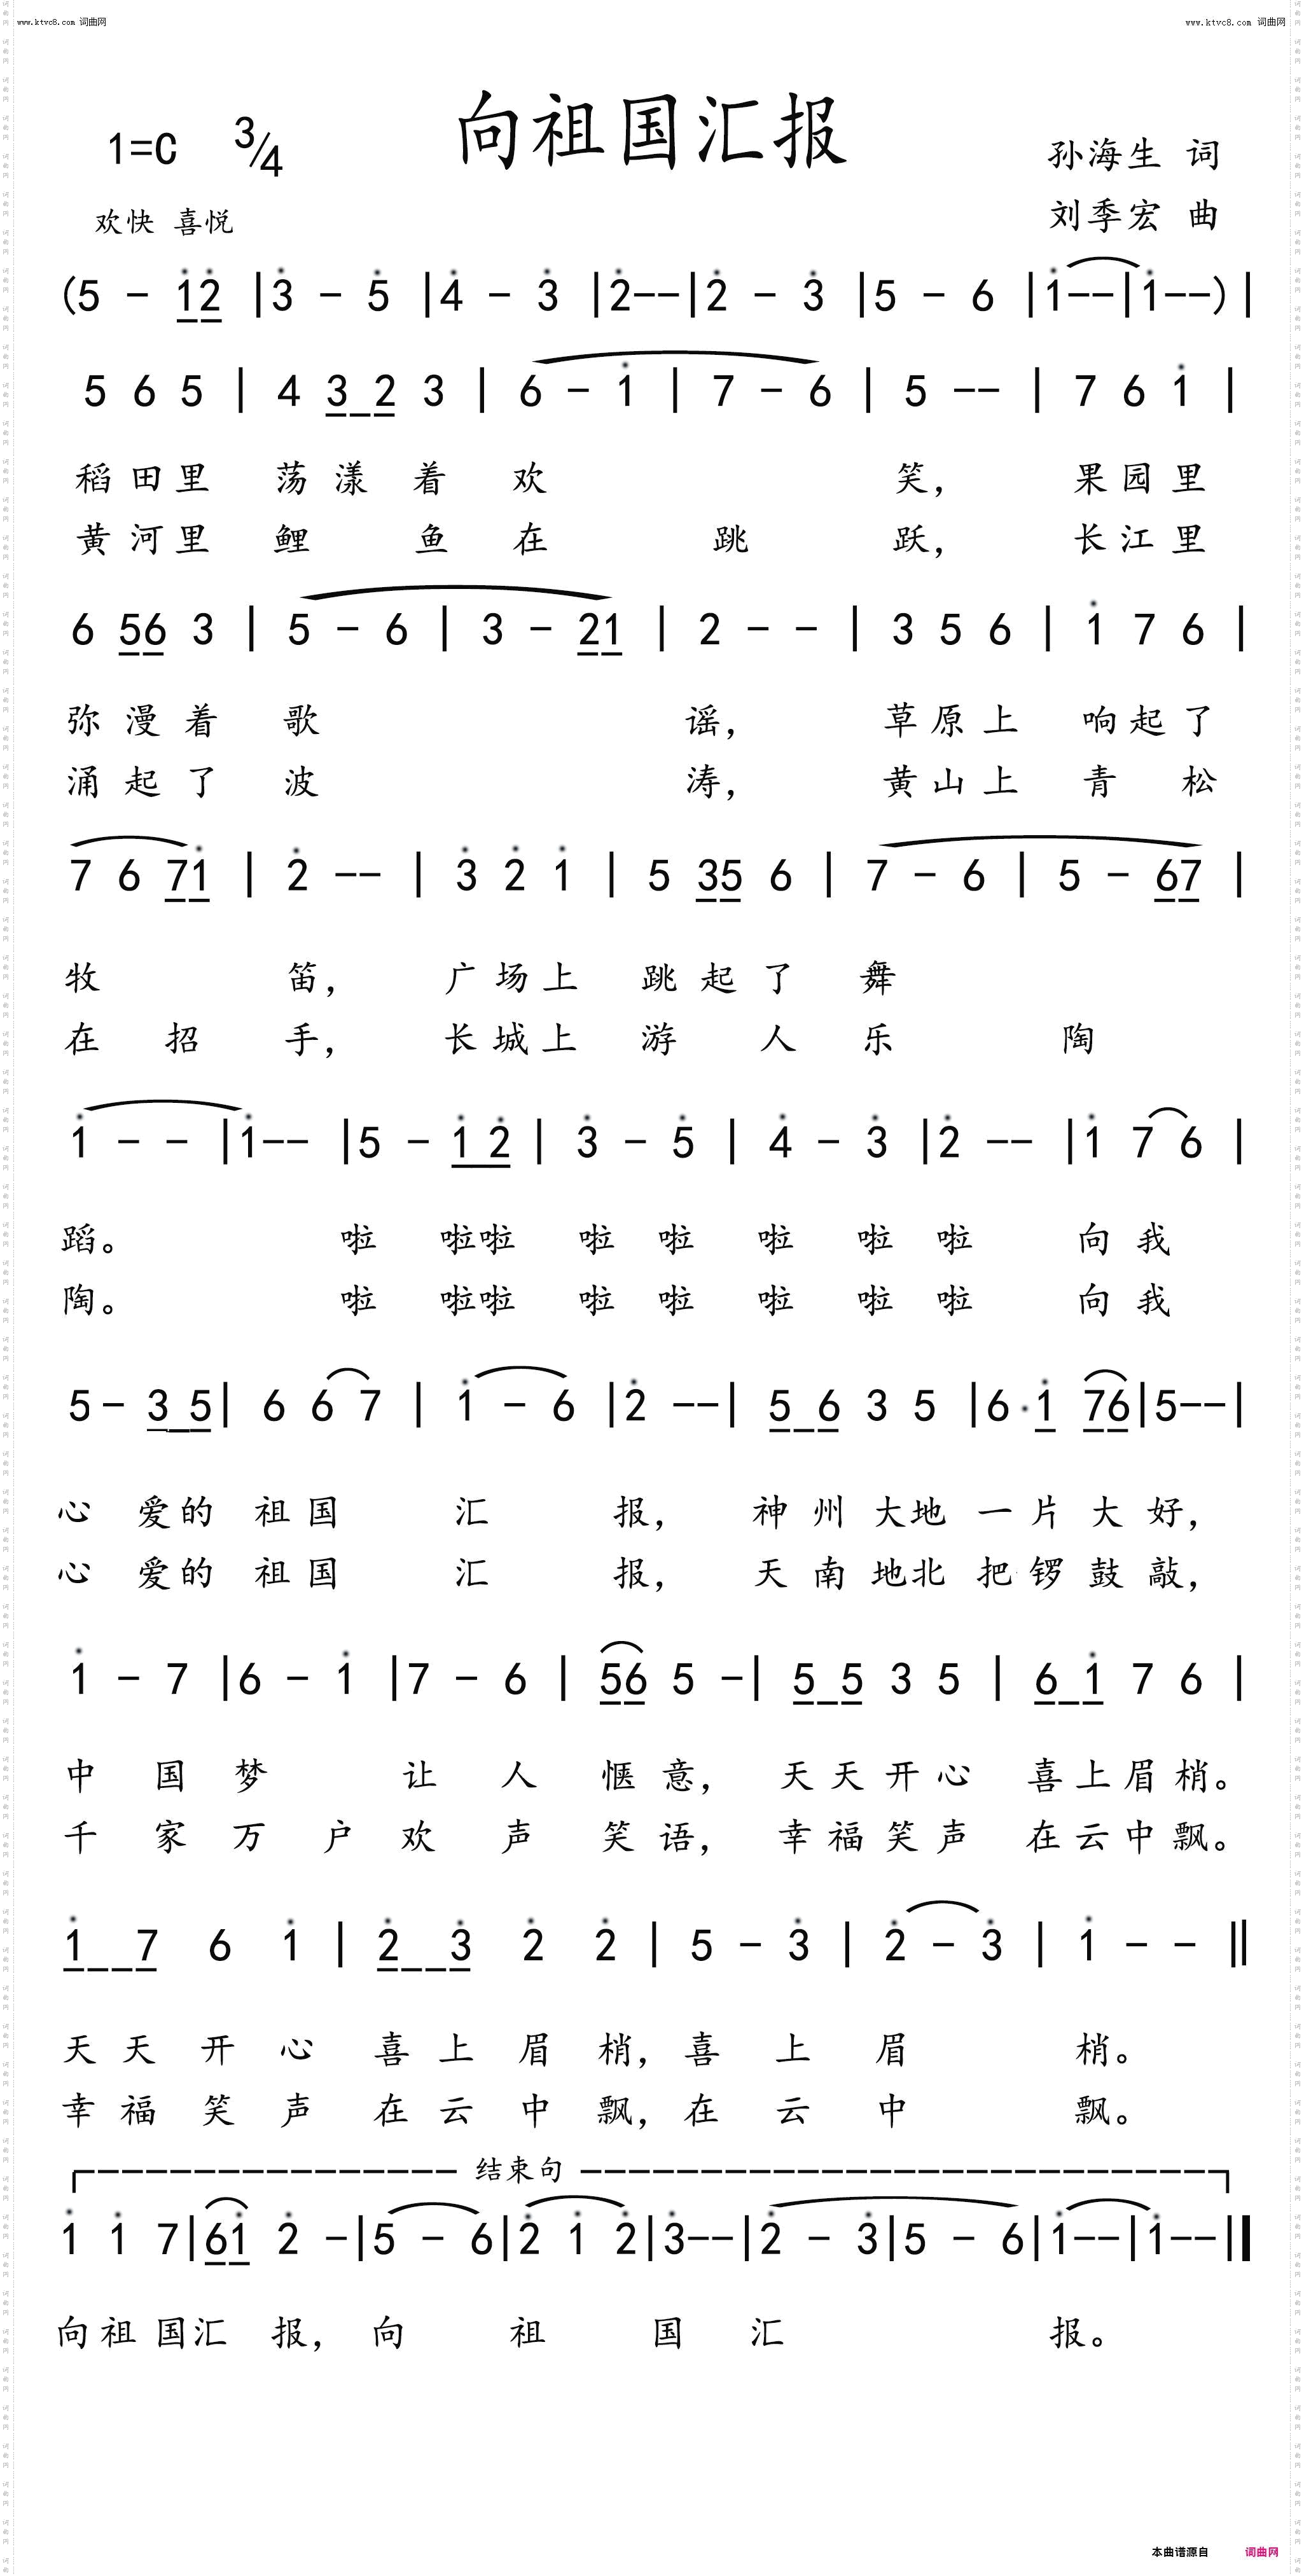 www.ktvc8.com 词曲网 www.ktvc8.com 词曲网
向祖国汇报
1=C 3/4
孙海生 词
欢快 喜悦
刘季宏 曲
(5 - i̲2̲̇ |3̇ - 5̇ |4̇ - 3̇ |2̇--|2̇ - 3̇ |5 - 6 |i--|i--)|
5 6 5 | 4 3̲ 2̲ 3 | 6 - i | 7 - 6 | 5 -- | 7 6 i |
稻田里 荡漾着 欢 笑， 果园里
黄河里 鲤 鱼 在 跳 跃， 长江里
6 5̲6̲ 3 | 5 - 6 | 3 - 2̲1̲ | 2 - - | 3 5 6 | i 7 6 |
弥漫着 歌 谣， 草原上 响起了
涌起了 波 涛， 黄山上 青 松
7 6 7̲i̲ | 2̇ -- | 3̇ 2̇ i | 5 3̲5̲ 6 | 7 - 6 | 5 - 6̲7̲ |
牧 笛， 广场上 跳起了 舞
在 招 手， 长城上 游 人 乐 陶
i - - |i-- |5 - i̲ 2̲̇ | 3̇ - 5̇ | 4̇ - 3̇ |2̇ -- |i 7 6 |
蹈。 啦 啦啦 啦 啦 啦 啦 啦 向 我
陶。 啦 啦啦 啦 啦 啦 啦 啦 向 我
5 - 3̲ 5̲| 6 6 7 | i - 6 |2̇ --| 5̲ 6̲ 3 5 |6· i̲ 7̲6̲|5--|
心 爱的 祖国 汇 报， 神 州 大地 一 片 大 好，
心 爱的 祖国 汇 报， 天 南 地北 把 锣 鼓 敲，
i - 7 |6 - i |7 - 6 | 5̲6̲ 5 -| 5̲ 5̲ 3 5 | 6̲ i̲ 7 6 |
中 国 梦 让 人 惬 意， 天天开心 喜上眉梢。
千 家 万 户 欢 声 笑 语， 幸福笑声 在云中飘。
i̲ 7̲ 6 i | 2̲̇ 3̲̇ 2̇ 2̇ | 5 - 3̇ | 2̇ - 3̇ | i - - ‖
天 天 开 心 喜 上 眉 梢， 喜 上 眉 梢。
幸 福 笑 声 在 云 中 飘， 在 云 中 飘。
结束句
i i 7|6̲i̲ 2̇ -|5 - 6|2̇ i 2̇|3̇--|2̇ - 3̇|5 - 6|i--|i--‖
向祖国汇 报， 向 祖 国 汇 报。
本曲谱源自 词曲网